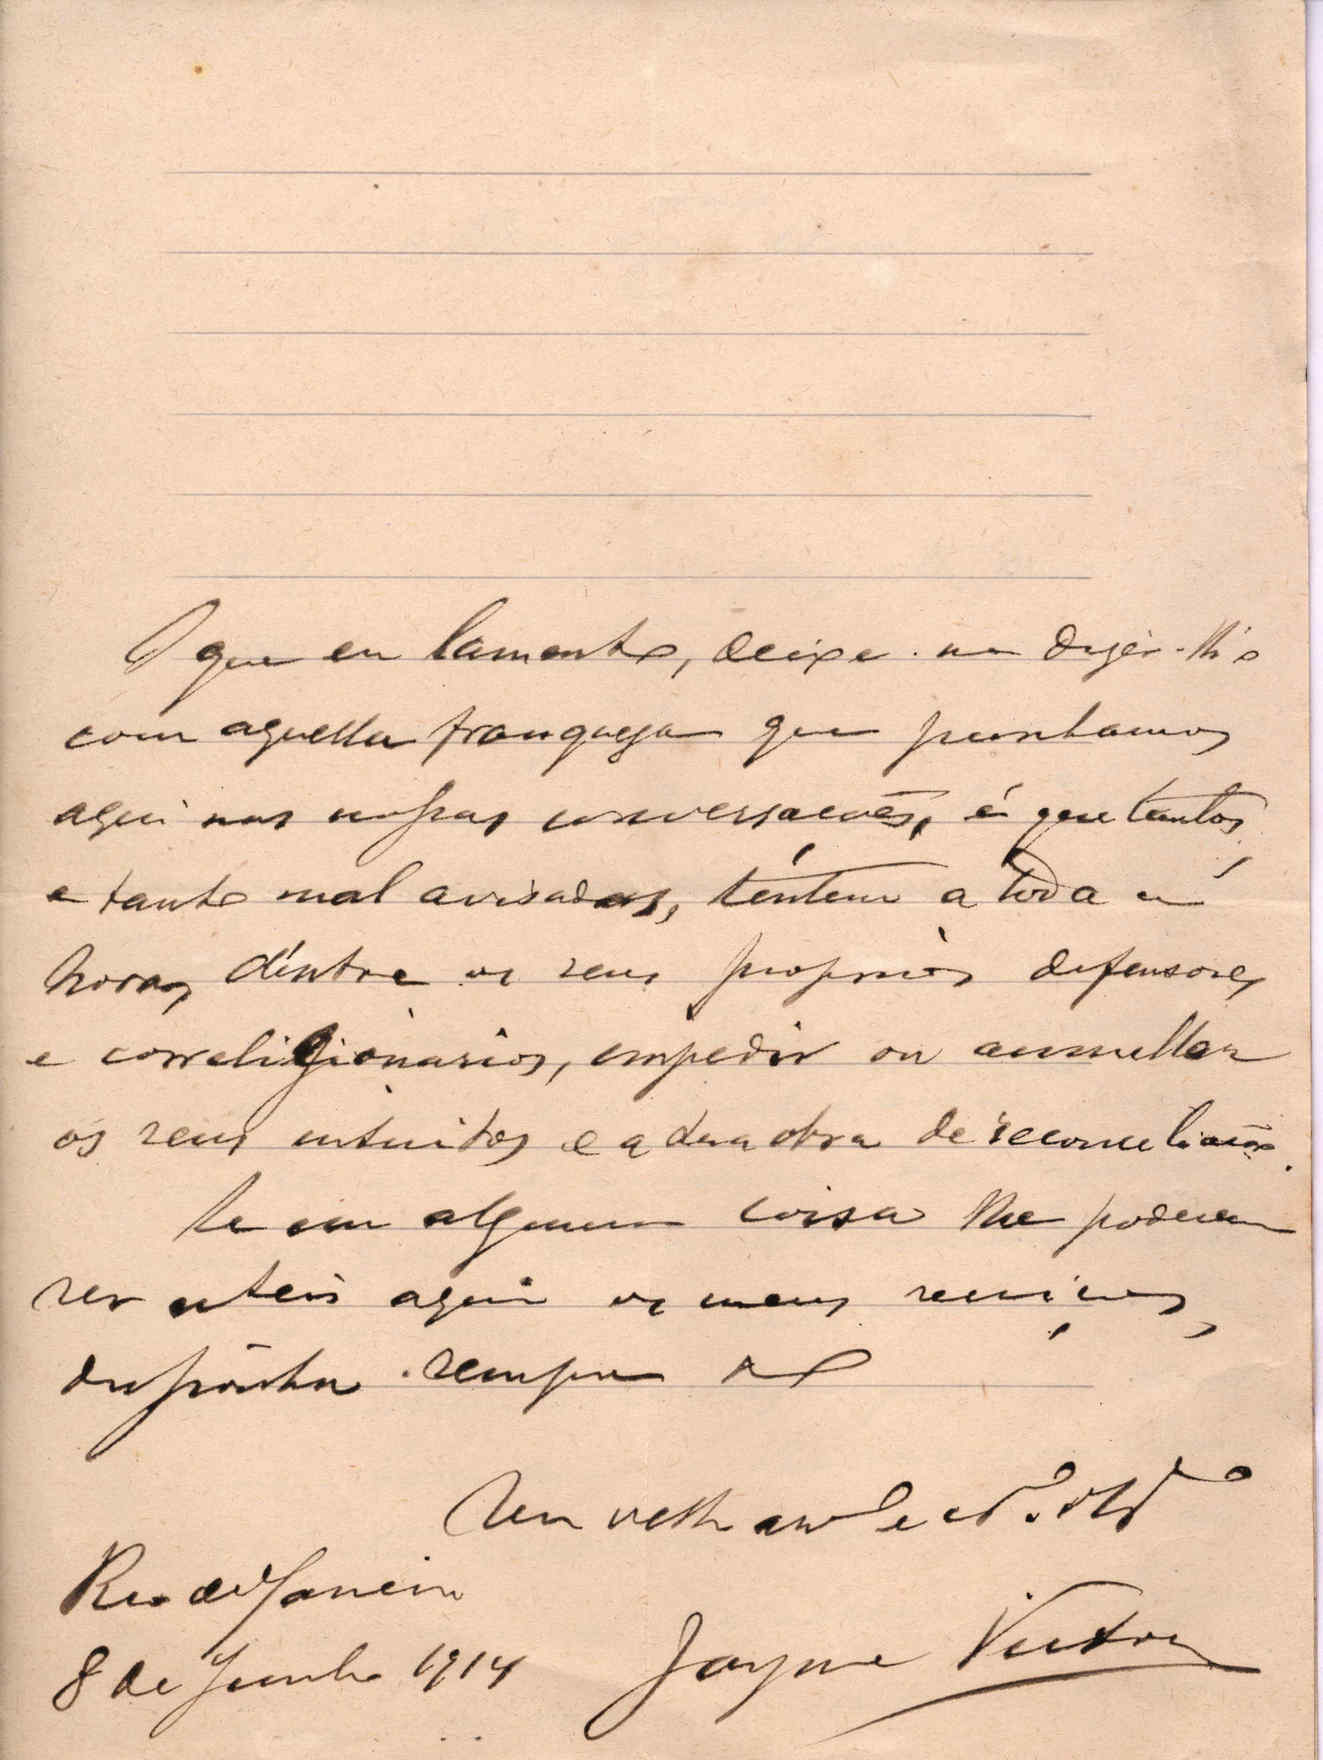 O que eu lamento, deixe-me dizer-lh'o
com aquella franqueza que punhamos
aqui nas nossas conversações, é que tantos,
e tanto mal avisados, tentem a toda a
hora, d'entre os seus proprios defensores
e correligionarios, empedir ou annullar
os seus intuitos e a sua obra de reconciliação.
Se em alguma coisa lhe poderem
ser uteis aqui os meus serviços,
disponha sempre do
Seu velho am.º e
Rio de Janeiro
8 de Junho 1914 Jayme Victor